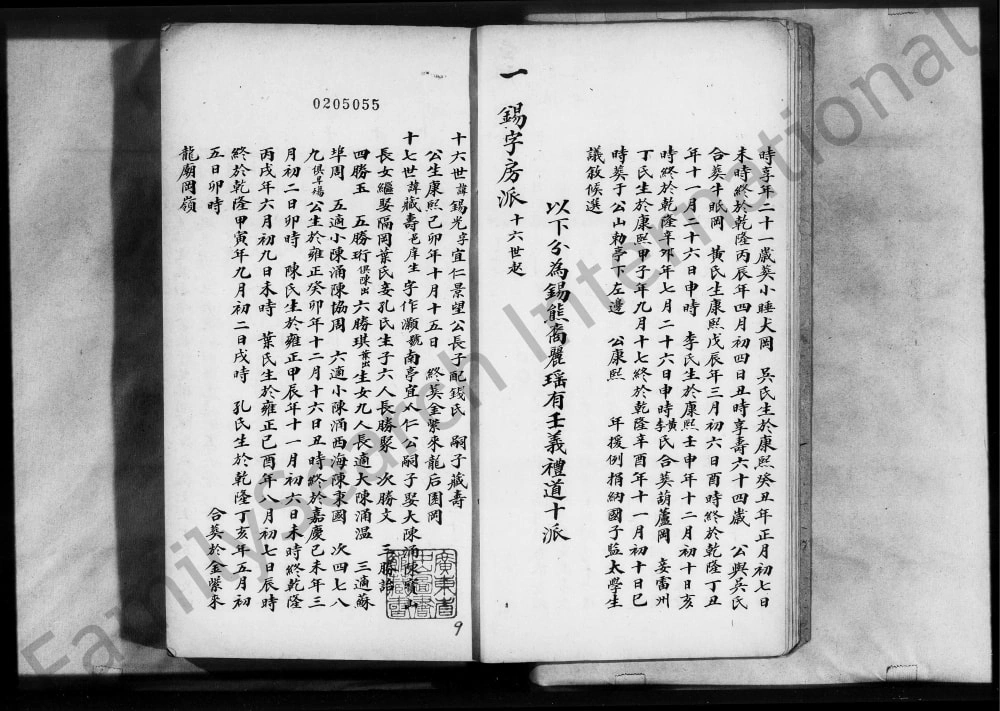 時享年二十一歲葬小睡大岡 吳氏生於康熙癸丑年正月初七日
未時終於乾隆丙辰年四月初四日丑時享壽六十四歲 公與吳氏
合葬牛眠岡 黃氏生康熙戊辰年三月初六日酉時終於乾隆丁丑
年十一月二十六日申時 李氏生於康熙壬申年十二月初十日亥
時終於乾隆辛卯年七月二十六日申時黃李氏合葬葫蘆岡 妾雷州
丁氏生於康熙甲子年九月十七終於乾隆辛酉年十一月初十日巳
時葬于公山勅亭下左邊 公康熙 年援例捐納國子監太學生
議敘候選
以下分為錫熊裔麗瑤有壬義禮道十派
一 錫字房派 十六世起
0205055
十六世諱錫光字宜仁景望公長子配錢氏 嗣子藏壽
公生康熙己卯年十月十五日 終葬金紫來龍后園岡
十七世諱藏壽邑庠生字作灝號南亭宜仁公嗣子娶大陳涌陳賢山
長女繼娶隔岡葉氏妾孔氏生子六人長勝聚 次勝文 三勝諧
四勝玉 五勝珩俱陳出六勝琪葉出生女九人長適大陳涌溫 三適蘇
埠周 五適小陳涌陳協周 六適小陳涌西海陳東國 次四七八
九俱早殤公生於雍正癸卯年十二月十六日丑時終於嘉慶己未年三
月初二日卯時 陳氏生於雍正甲辰年十一月初六 未時終乾隆
丙戌年六月初九日未時 葉氏生於雍正己酉年八月初七日辰時
終於乾隆甲寅年九月初二日戌時 孔氏生於乾隆丁亥年五月初
五日卯時 合葬於金紫來
龍廟岡嶺
廣東省
中山圖書
館藏書
9
FamilySearch International